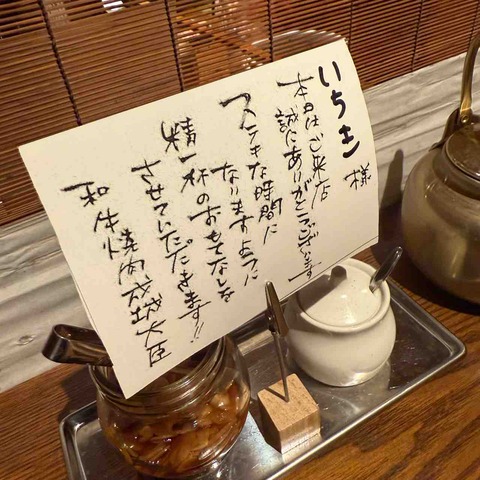 いちき 様
本日はご来店
誠にありがとうございます
ステキな時間に
なりますように
精一杯のおもてなしを
させていただきます!!
和牛焼肉成城大臣